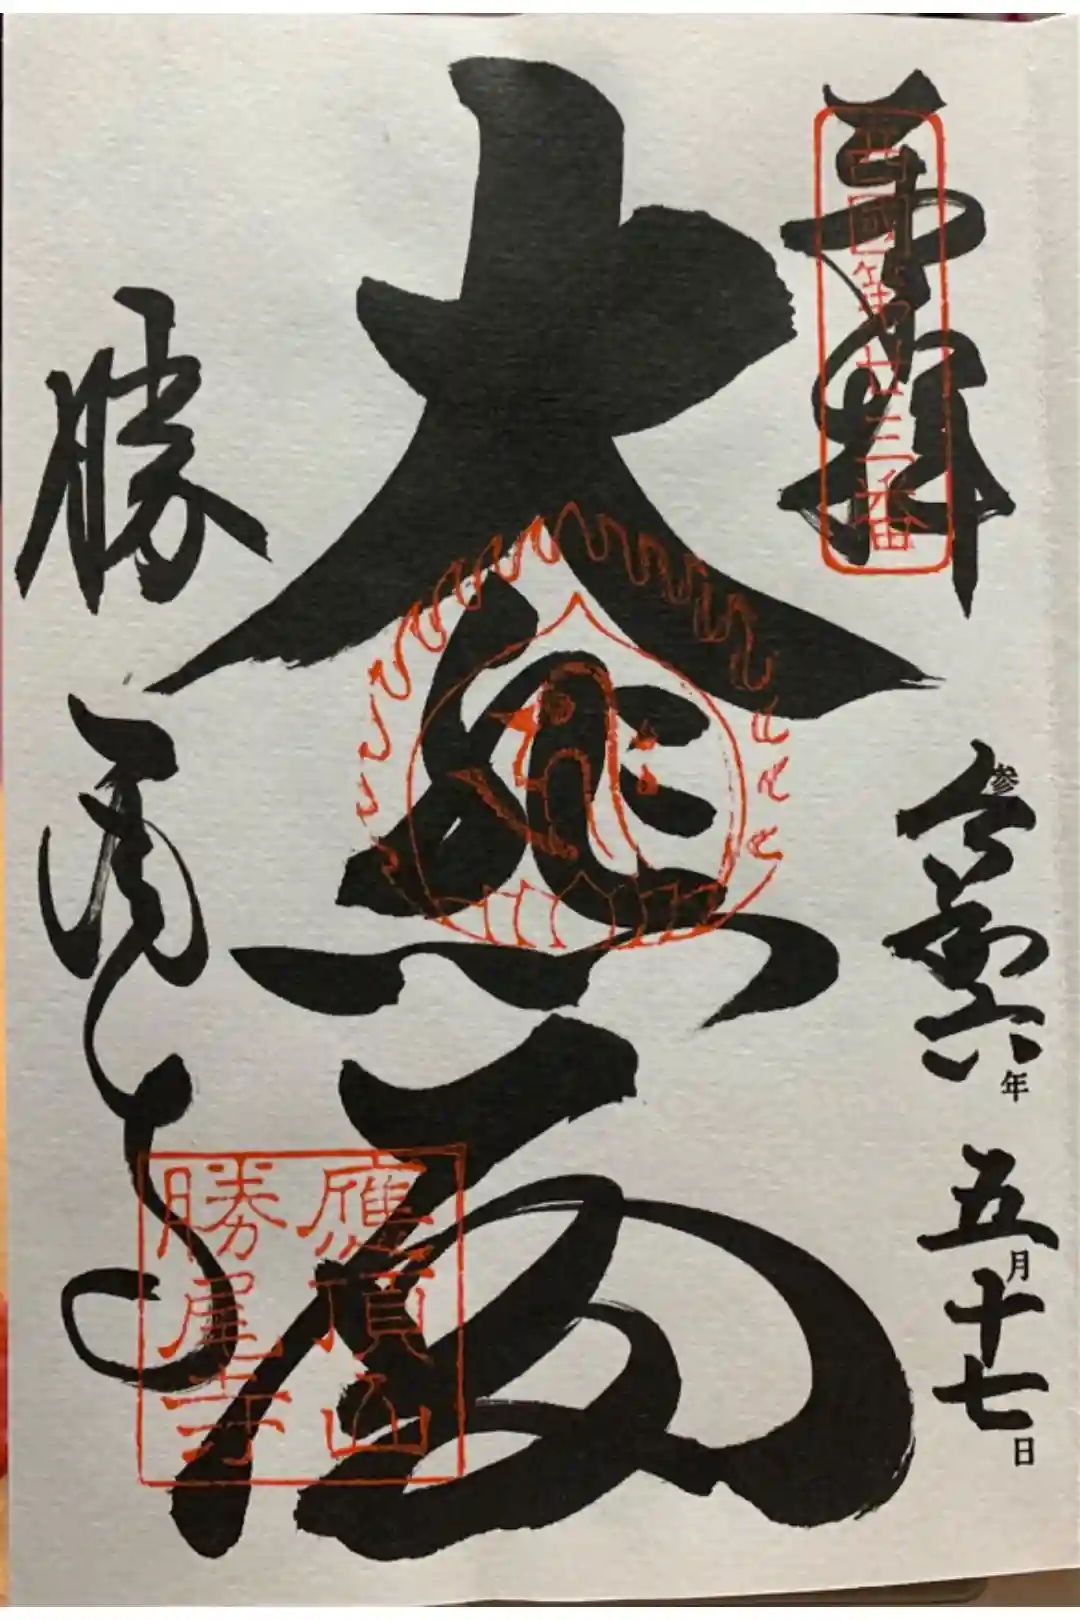 奉拝
西國第廿三番
参
令和六年五月十七日
大悲
勝尾寺
應頂山
勝尾寺